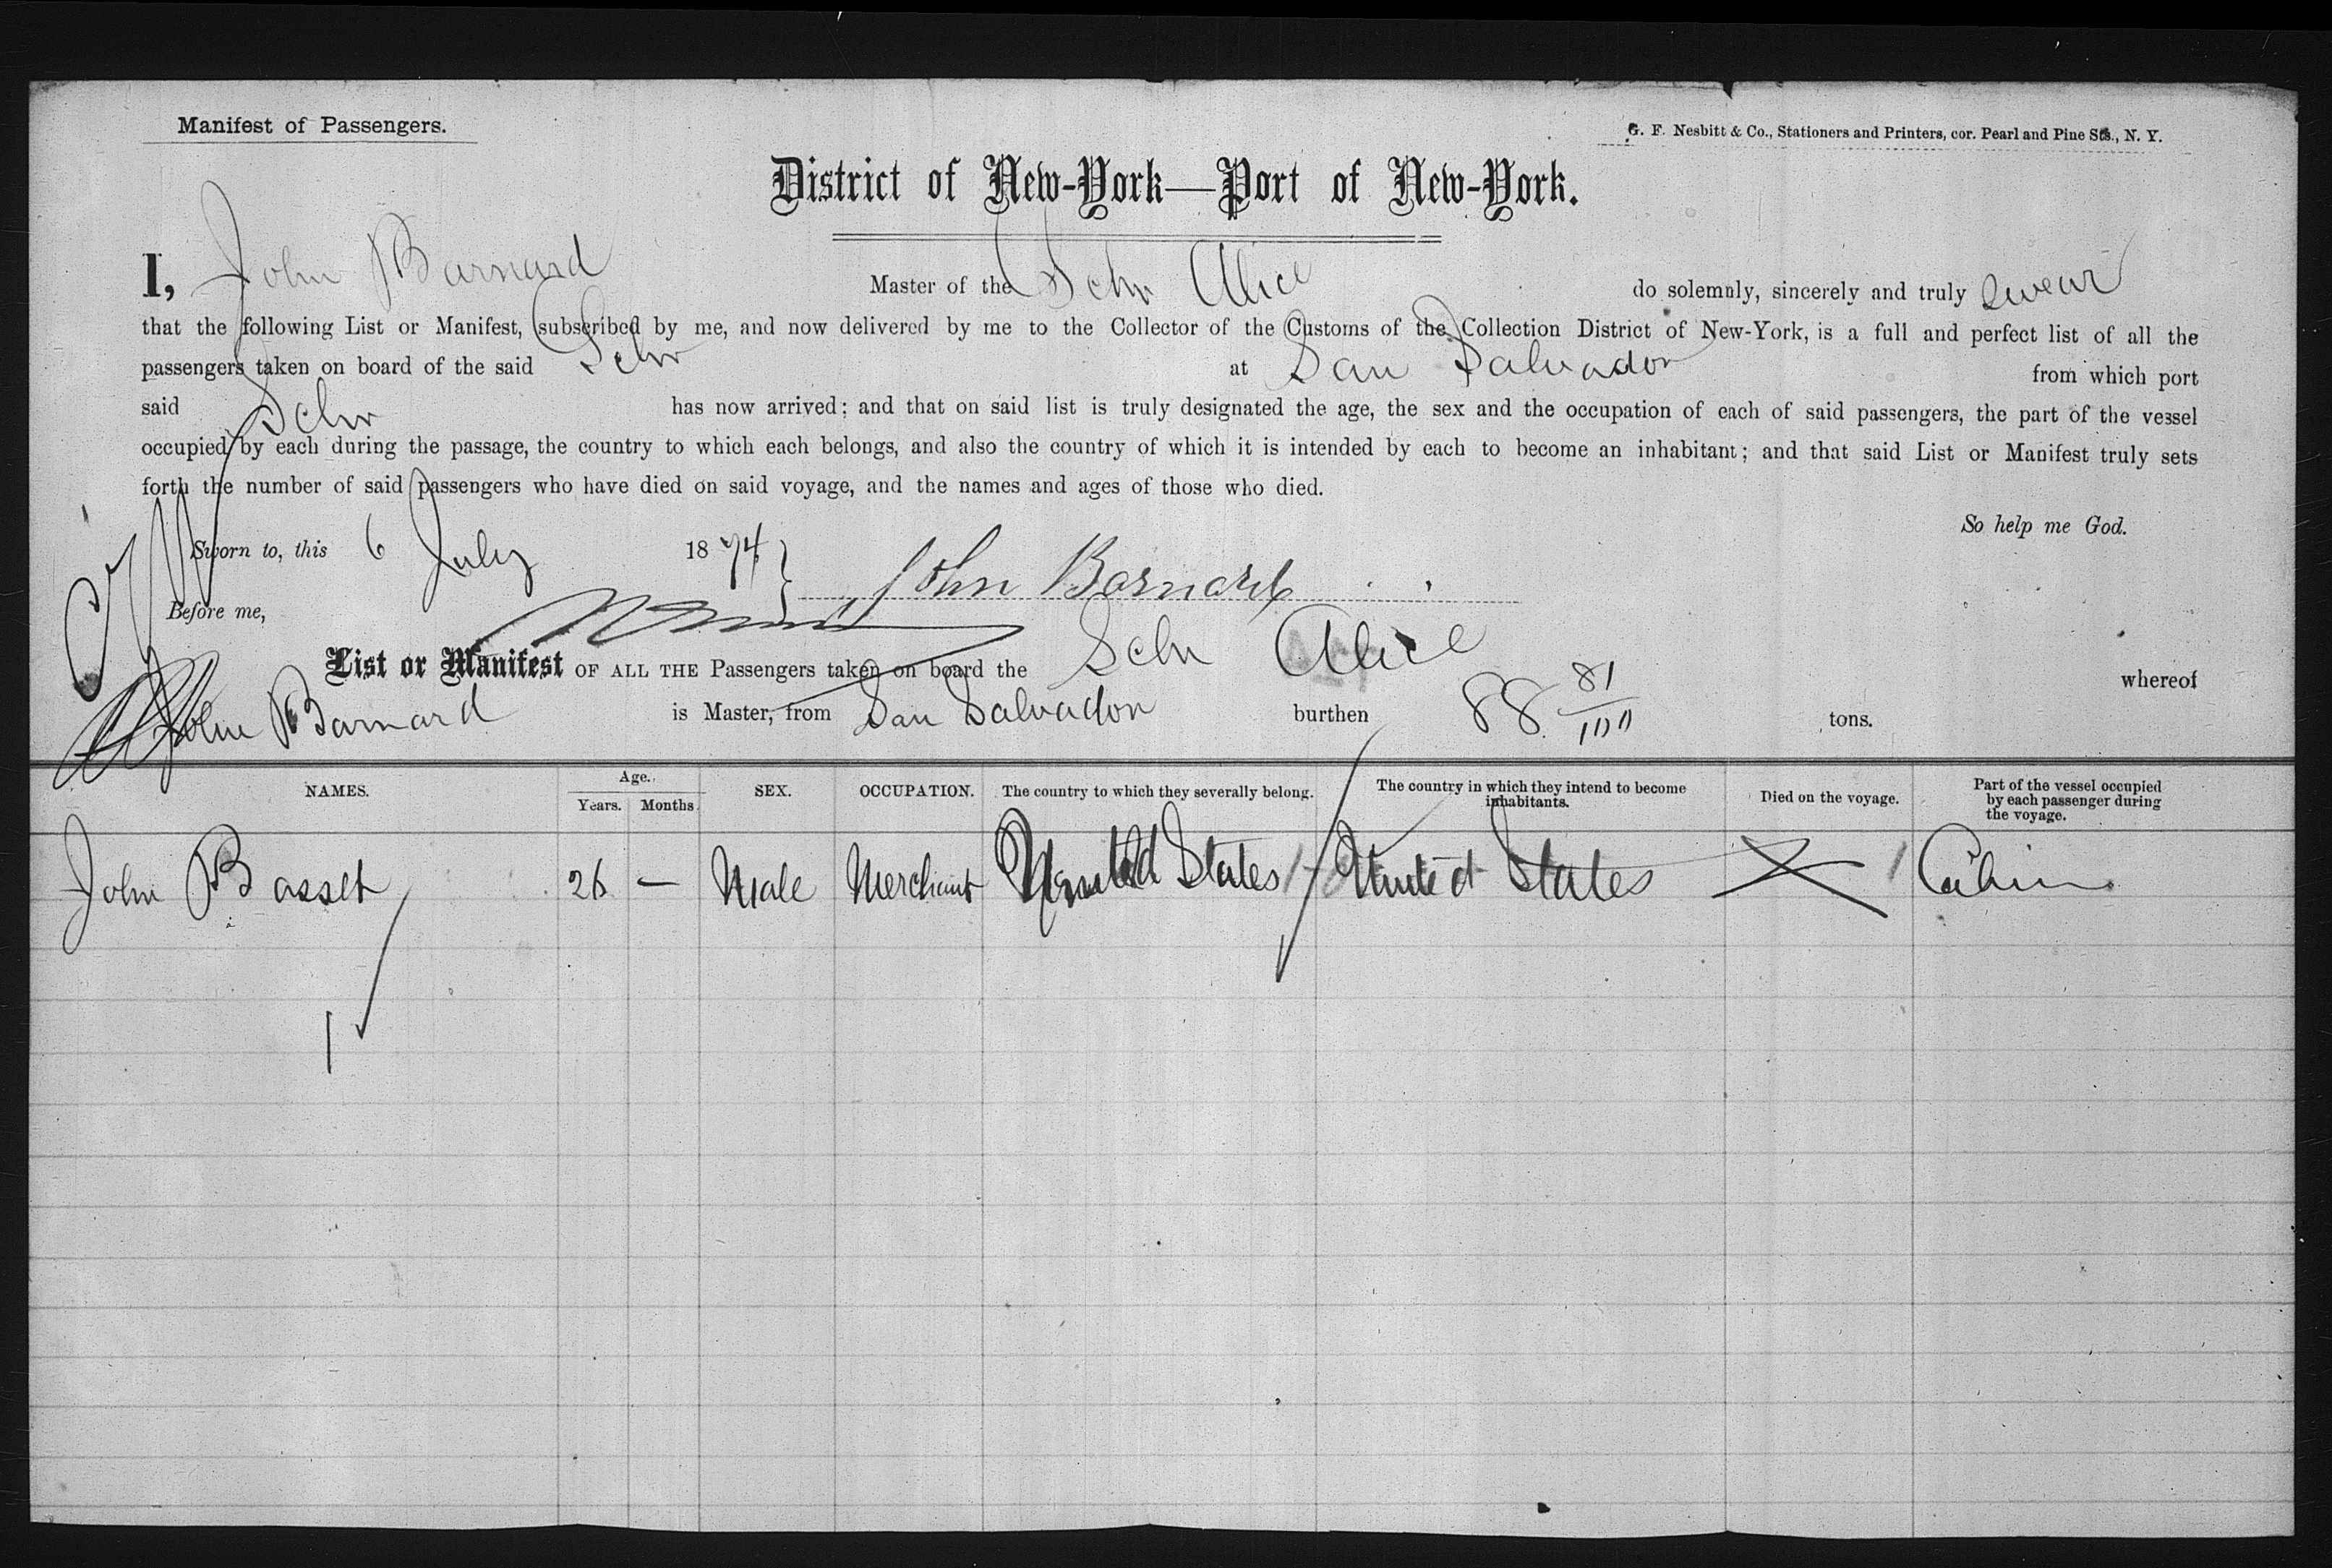 Manifest of Passengers.
G. F. Nesbitt & Co., Stationers and Printers, cor. Pearl and Pine Sts., N. Y.
District of New-York—Port of New-York.
I, John Barnard Master of the Schr Alice do solemnly, sincerely and truly swear
that the following List or Manifest, subscribed by me, and now delivered by me to the Collector of the Customs of the Collection District of New-York, is a full and perfect list of all the
passengers taken on board of the said Schr at San Salvador from which port
said Schr has now arrived; and that on said list is truly designated the age, the sex and the occupation of each of said passengers, the part of the vessel
occupied by each during the passage, the country to which each belongs, and also the country of which it is intended by each to become an inhabitant; and that said List or Manifest truly sets
forth the number of said passengers who have died on said voyage, and the names and ages of those who died.
So help me God.
Sworn to, this 6 July 1874 } John Barnard
Before me,
List or Manifest OF ALL THE Passengers taken on board the Schr Alice whereof
John Barnard is Master, from San Salvador burthen 88 81/100 tons.
NAMES. Age. Years. Months. SEX. OCCUPATION. The country to which they severally belong. The country in which they intend to become inhabitants. Died on the voyage. Part of the vessel occupied by each passenger during the voyage.
John Basset 26 — Male Merchant United States United States Cabin
1